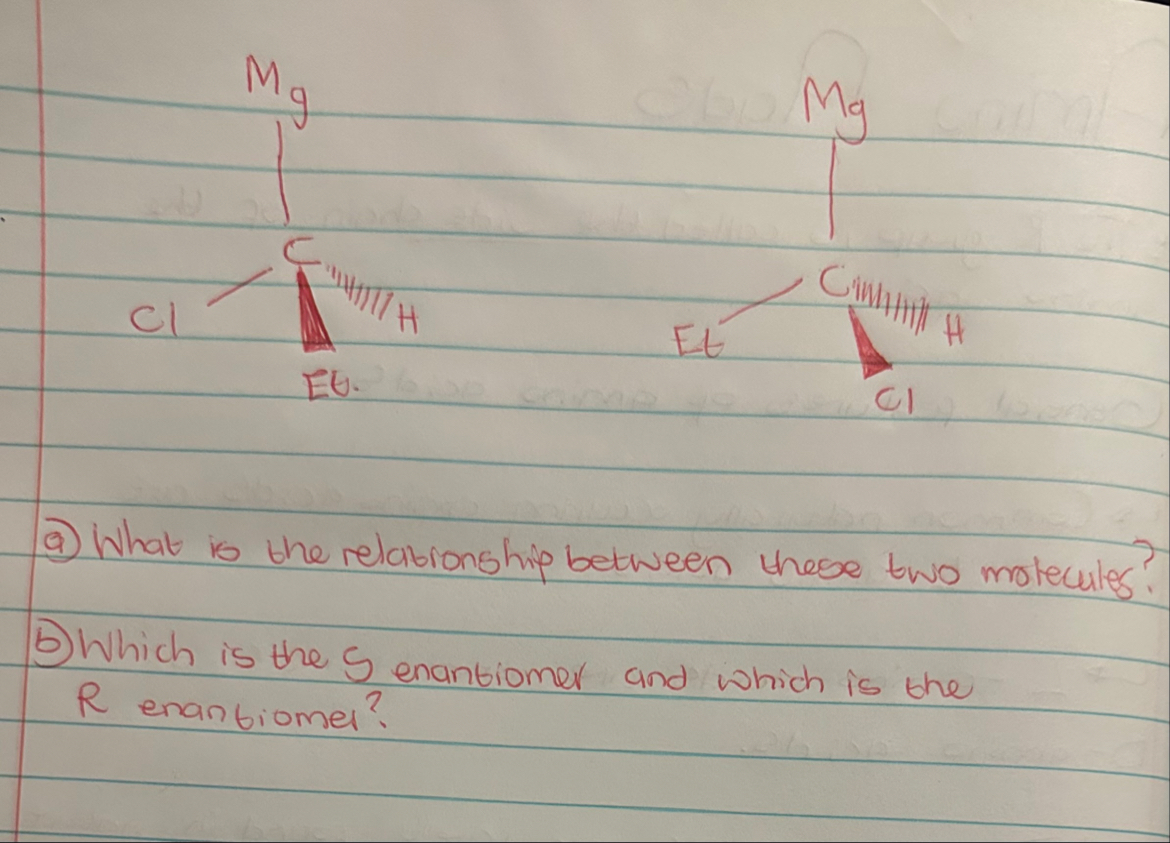 Mg Mg
C C
Cl H Et H
Et. Cl
a) What is the relationship between these two molecules?
b) Which is the S enantiomer and which is the
R enantiomer?